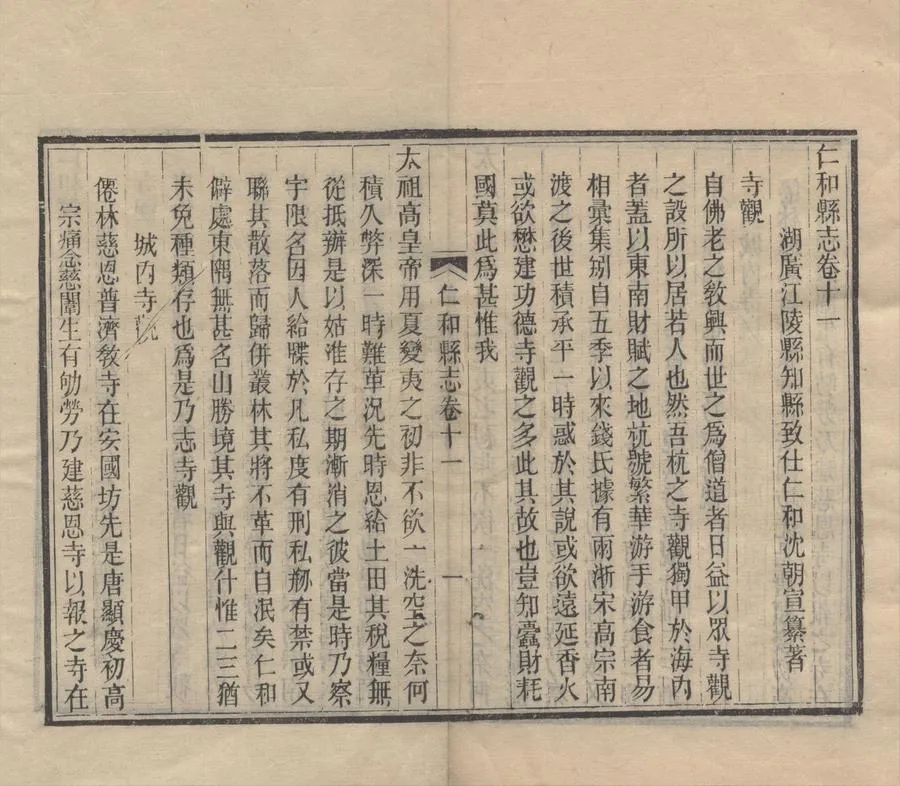 仁和縣志卷十一
湖廣江陵縣知縣致仕仁和沈朝宣纂著
寺觀
自佛老之教興而世之爲僧道者日益以眾寺觀
之設所以居若人也然吾杭之寺觀獨甲於海内
者蓋以東南財賦之地杭號繁華游手游食者易
相彙集矧自五季以來錢氏據有兩浙宋高宗南
渡之後世積承平一時惑於其說或欲遠延香火
或欲懋建功德寺觀之多此其故也豈知蠹財耗
國莫此爲甚惟我
仁和縣志卷十一
一
太祖高皇帝用夏變夷之初非不欲一洗空之奈何
積久弊深一時難革况先時恩給土田其稅糧無
從抵辦是以姑准存之期漸消之彼當是時乃察
宇限名因人給牒於凡私度有刑私剏有禁或又
聯其散落而歸併叢林其將不革而自泯矣仁和
僻處東隅無甚名山勝境其寺與觀什惟二三猶
未免種類存也爲是乃志寺觀
城内寺觀
僊林慈恩普濟教寺在安國坊先是唐顯慶初高
宗痛念慈闈生有劬勞乃建慈恩寺以報之寺在